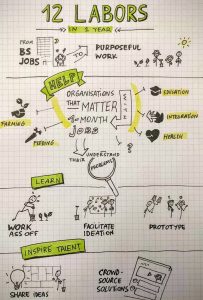 12 LABORS
IN 1 YEAR
FROM
BS
JOBS
TO
PURPOSEFUL
WORK
HELP
ORGANISATIONS
THAT
MATTER
1 MONTH
JOBS
EDUCATION
INTEGRATION
HEALTH
FARMING
FEEDING
?
UNDERSTAND
THEIR
PROBLEMS
LEARN
WORK
ASS OFF
FACILITATE
IDEATION
PROTOTYPE
INSPIRE TALENT
SHARE IDEAS
CROWD-
SOURCE
SOLUTIONS